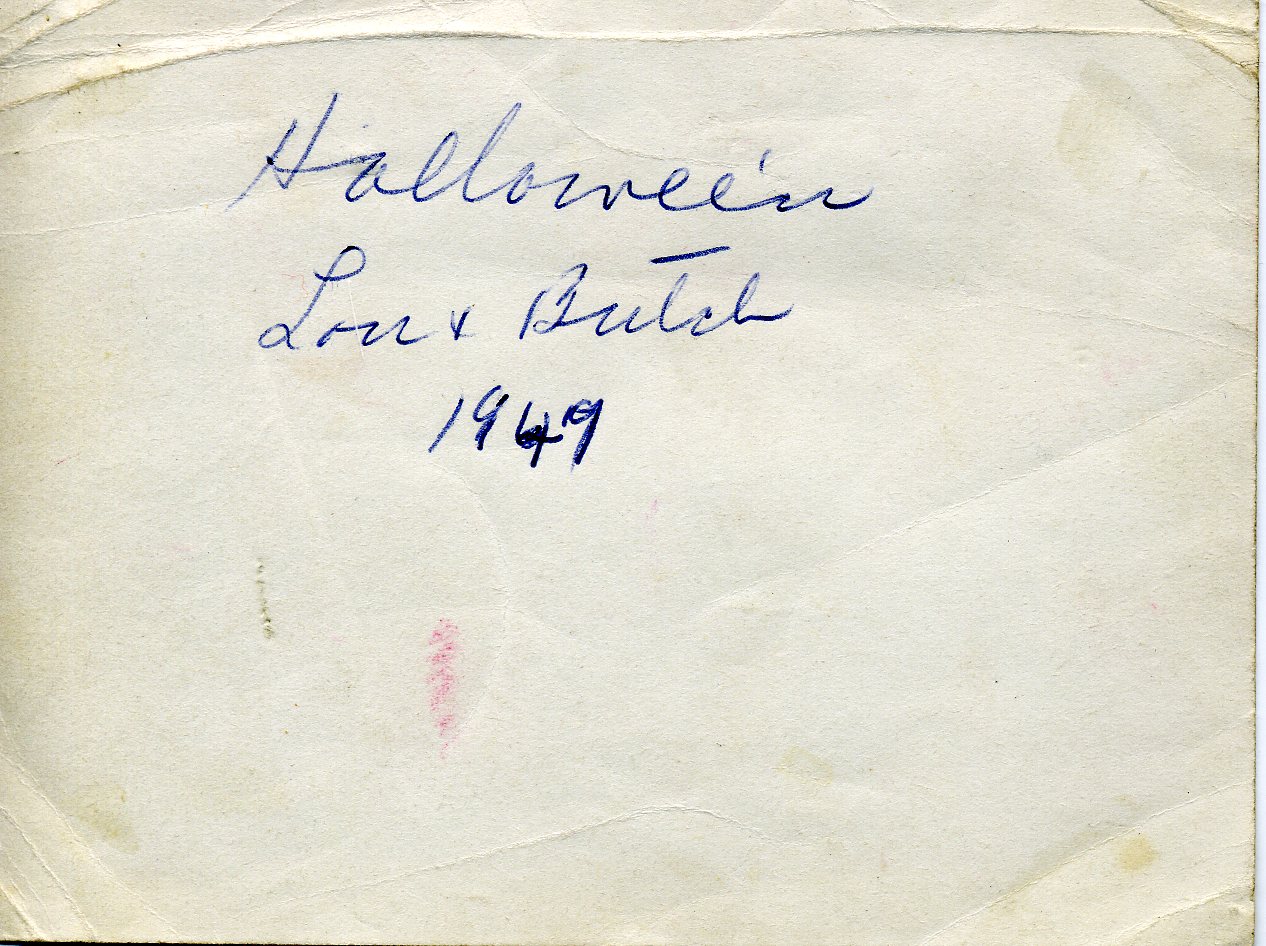 Hallowee'n
Lou + Butch
1949